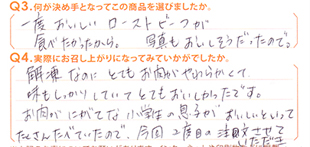 Q3.何が決め手となってこの商品を選びましたか。
一度おいしいローストビーフが
食べたかったから。 写真もおいしそうだったので。
Q4.実際にお召し上がりになってみていかがでしたか。
解凍なのにとてもお肉がやわらかくて、
味もしっかりしていてとてもおいしかったです。
お肉がにがてな小学生の息子がおいしいといって
たくさんたべていたので、今回2度目の注文させて
いただき